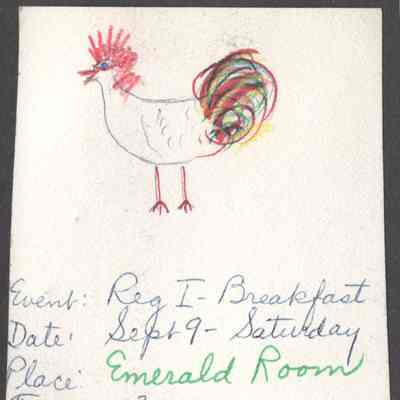 Event: Reg I - Breakfast
Date: Sept 9 - Saturday
Place: Emerald Room